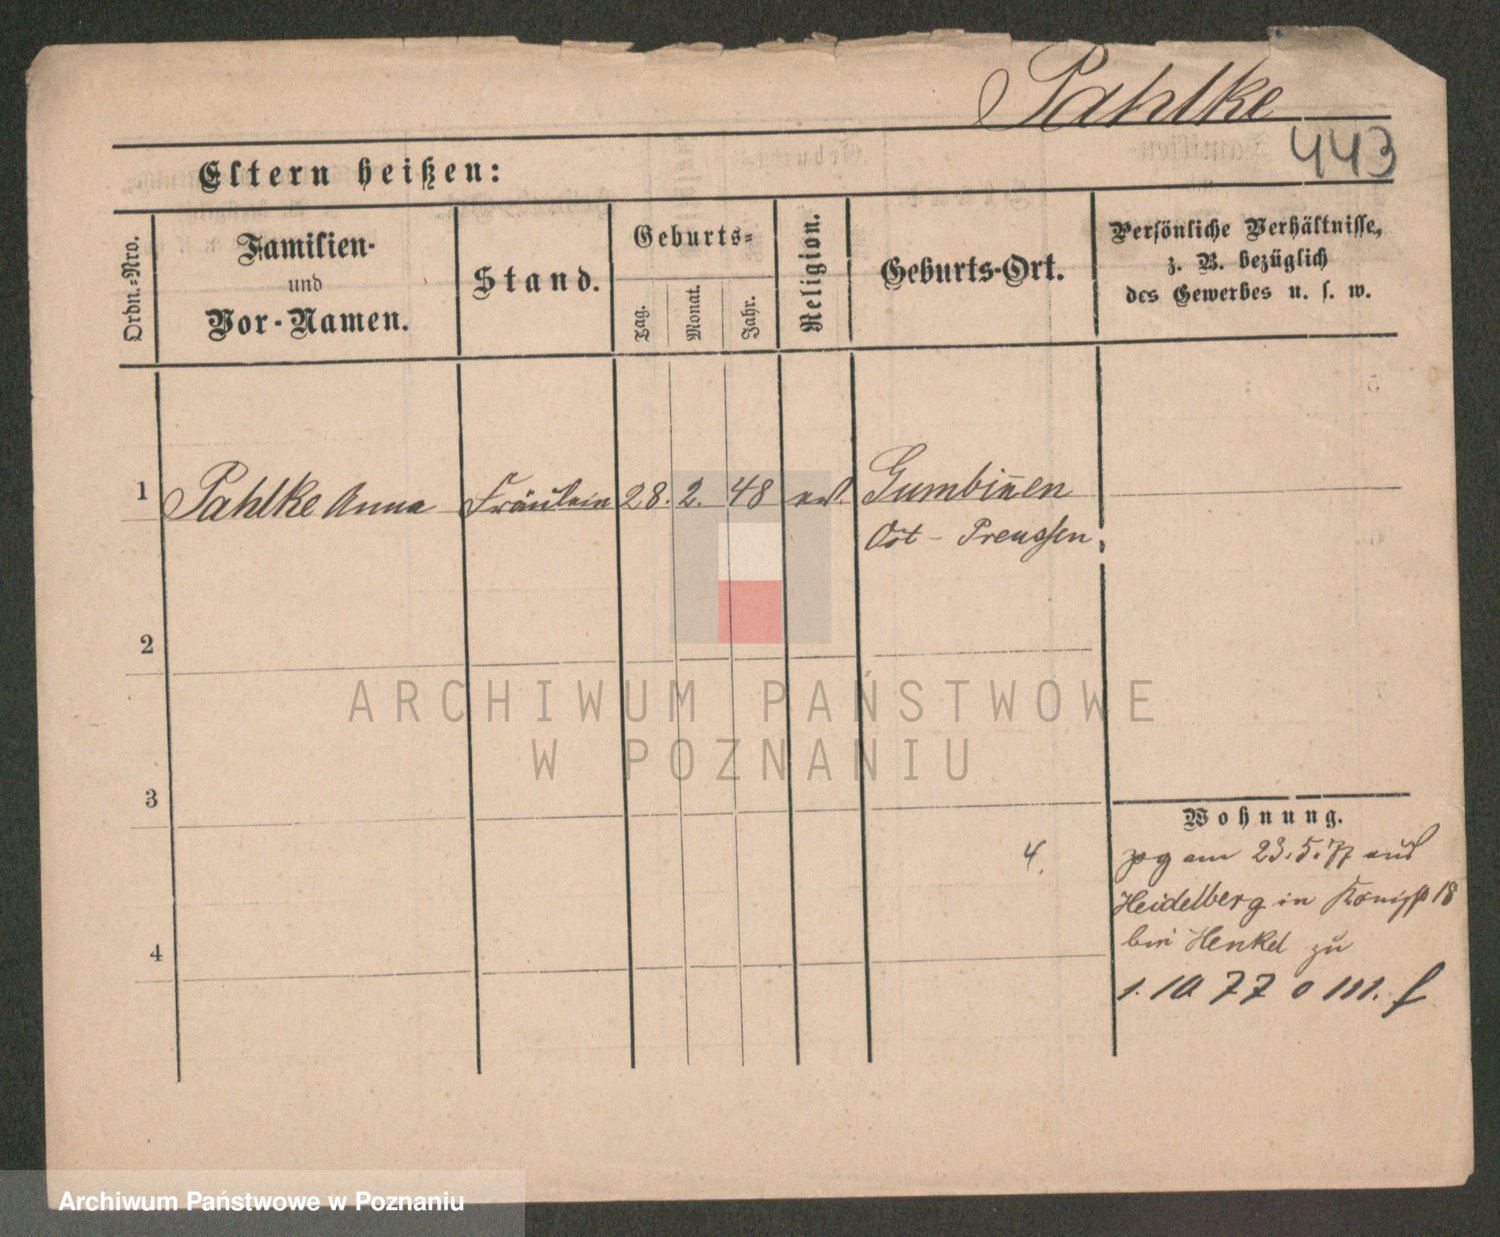 Pahlke
443
Eltern heißen:
Ordn.-Nro.
Familien-
und
Vor-Namen.
Stand.
Geburts-
Tag.
Monat.
Jahr.
Religion.
Geburts-Ort.
Persönliche Verhältnisse,
z. B. bezüglich
des Gewerbes u. s. w.
1
Pahlke Anna
Fräulein
28.
2.
48
Gumbin̄en
Ost - Preussen
2
3
4
4.
Wohnung.
zg am 23.5.77 aus
Heidelberg in Königst 18
bei Henkel zu
1. 10 77 o III. f
ARCHIWUM PAŃSTWOWE
W POZNANIU
Archiwum Państwowe w Poznaniu